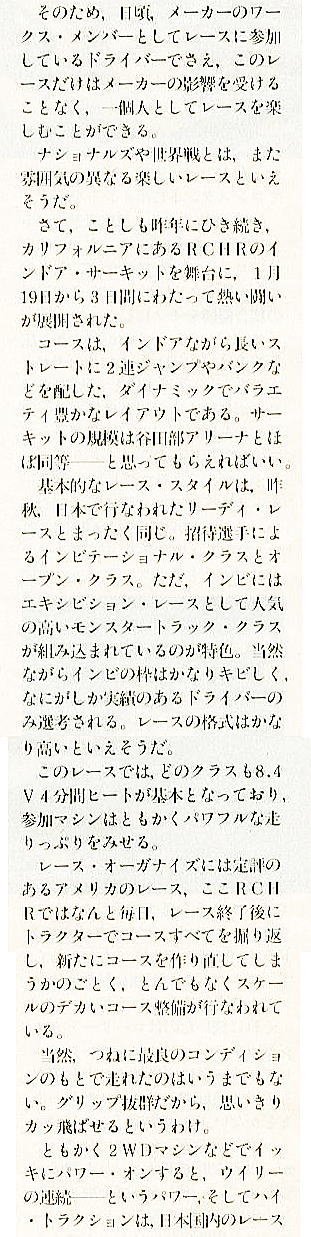 そのため，日頃，メーカーのワー
クス・メンバーとしてレースに参加
しているドライバーでさえ，このレ
ースだけはメーカーの影響を受ける
ことなく，一個人としてレースを楽
しむことができる。
ナショナルズや世界戦とは，また
雰囲気の異なる楽しいレースといえ
そうだ。
さて，ことしも昨年にひき続き，
カリフォルニアにあるＲＣＨＲのイ
ンドア・サーキットを舞台に，１月
19日から３日間にわたって熱い闘い
が展開された。
コースは，インドアながら長いス
トレートに２連ジャンプやバンクな
どを配した，ダイナミックでバラエ
ティ豊かなレイアウトである。サー
キットの規模は谷田部アリーナとほ
ぼ同等——と思ってもらえればいい。
基本的なレース・スタイルは，昨
秋，日本で行なわれたリーディ・レ
ースとまったく同じ。招待選手によ
るインビテーショナル・クラスとオ
ープン・クラス。ただ，インビには
エキシビション・レースとして人気
の高いモンスタートラック・クラス
が組み込まれているのが特色。当然
ながらインビの枠はかなりキビしく，
なにがしか実績のあるドライバーの
み選考される。レースの格式はかな
り高いといえそうだ。
このレースでは，どのクラスも8.4
Ｖ４分間ヒートが基本となっており，
参加マシンはともかくパワフルな走
りっぷりをみせる。
レース・オーガナイズには定評の
あるアメリカのレース，ここＲＣＨ
Ｒではなんと毎日，レース終了後に
トラクターでコースすべてを掘り返
し，新たにコースを作り直してしま
うかのごとく，とんでもなくスケー
ルのデカいコース整備が行なわれて
いる。
当然，つねに最良のコンディショ
ンのもとで走れたのはいうまでもな
い。グリップ抜群だから，思いきり
カッ飛ばせるというわけ。
ともかく２ＷＤマシンなどでイッ
キにパワー・オンすると，ウイリー
の連続——というパワー，そしてハイ
・トラクションは，日本国内のレース